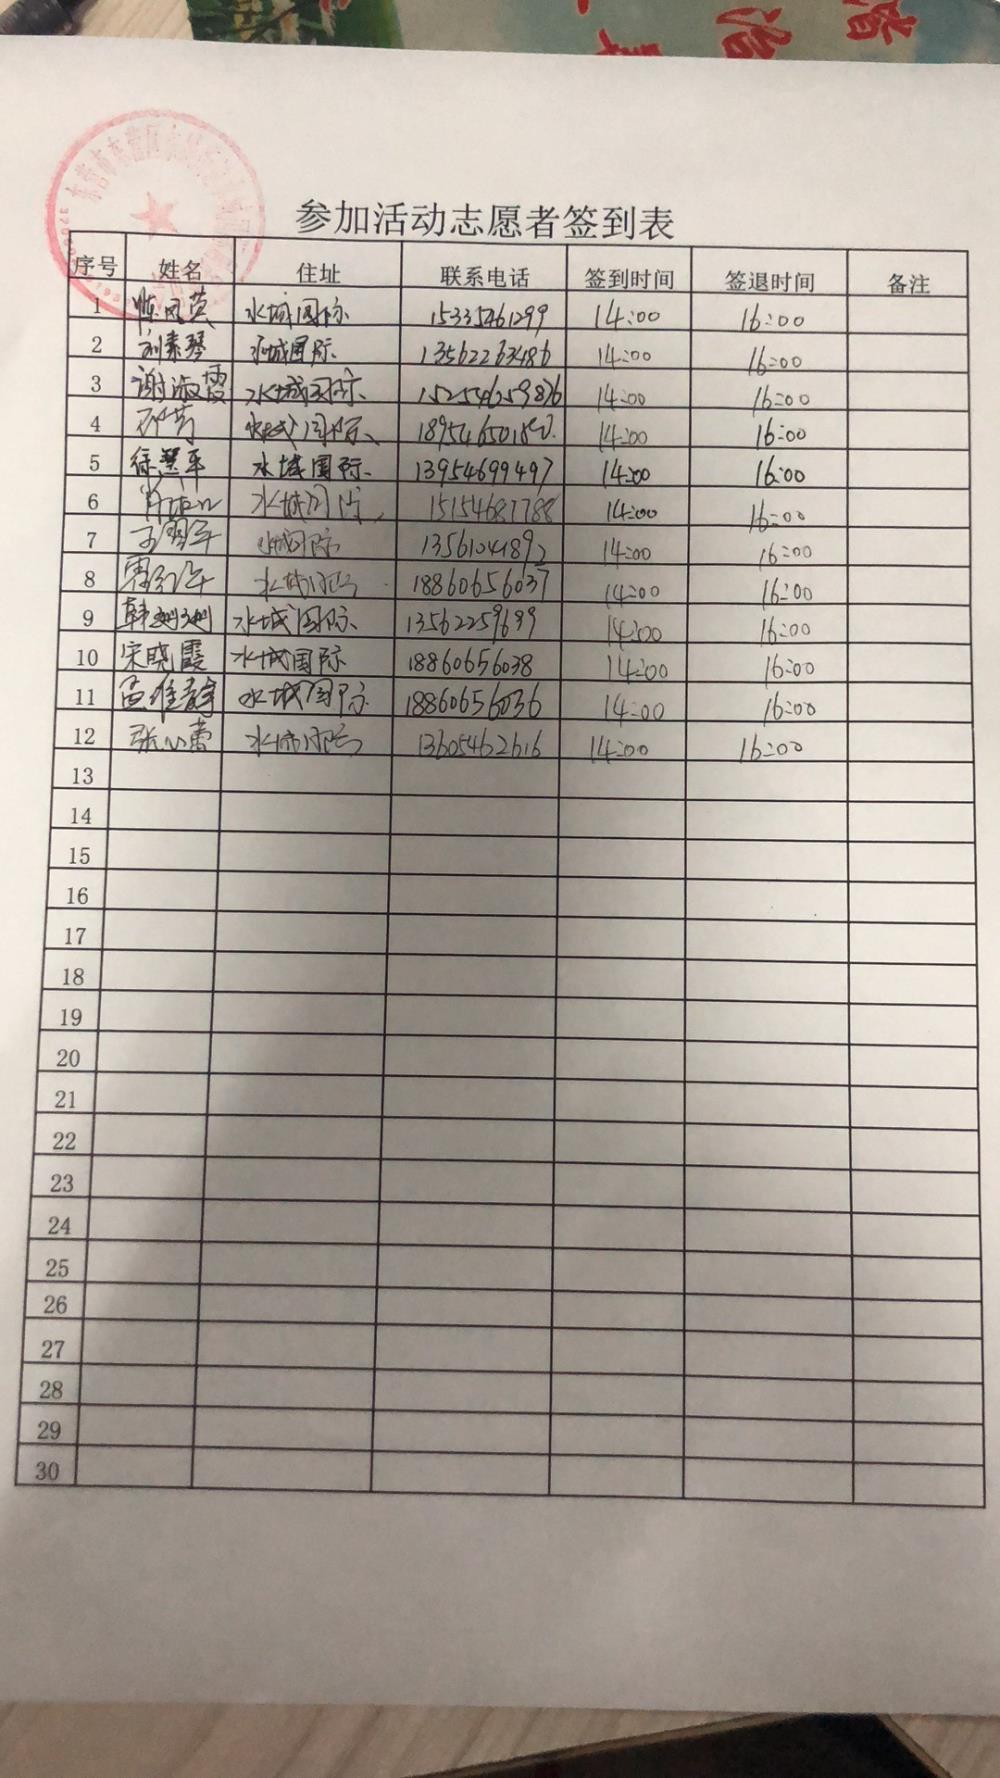 参加活动志愿者签到表
序号 姓名 住址 联系电话 签到时间 签退时间 备注
1 陈凤英 水城国际 15335461299 14:00 16:00
2 刘素琴 水城国际 13562263486 14:00 16:00
3 谢淑霞 水城国际 15254659876 14:00 16:00
4 水城国际 14:00 16:00
5 徐慧平 水城国际 13954699497 14:00 16:00
6 水城国际 15154687788 14:00 16:00
7 水城国际 13561041892 14:00 16:00
8 水城国际 18860656037 14:00 16:00
9 韩珊珊 水城国际 13562259699 14:00 16:00
10 宋晓霞 水城国际 18860656038 14:00 16:00
11 水城国际 18860656036 14:00 16:00
12 张心蕾 水城国际 13605462616 14:00 16:00
13
14
15
16
17
18
19
20
21
22
23
24
25
26
27
28
29
30